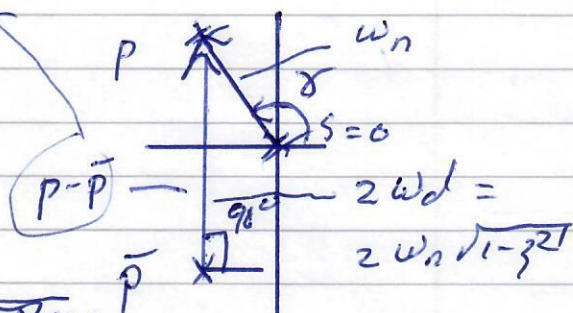 p
ωn
γ
s=0
p-p̄
2ωd =
90°
2ωn√1-ζ²
p̄